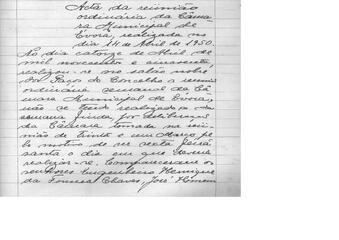 Acta da reunião
ordinária da Câma-
ra Municipal de
Évora, realizada no
dia 14 de Abril de 1950.
No dia catorze de Abril de
mil novecentos e cincoenta,
realizou-se no salão nobre
dos Paços do Concelho a reunião
ordinária semanal da Câ-
mara Municipal de Évora,
não se tendo realizado na
semana finda, por deliberação
da Câmara tomada na reu-
nião de trinta e um Março, pe-
lo motivo de ser sexta feira
santa o dia em que devia
realizar-se. Compareceram os
senhores Engenheiro Henrique
da Fonseca Chaves, José Homem